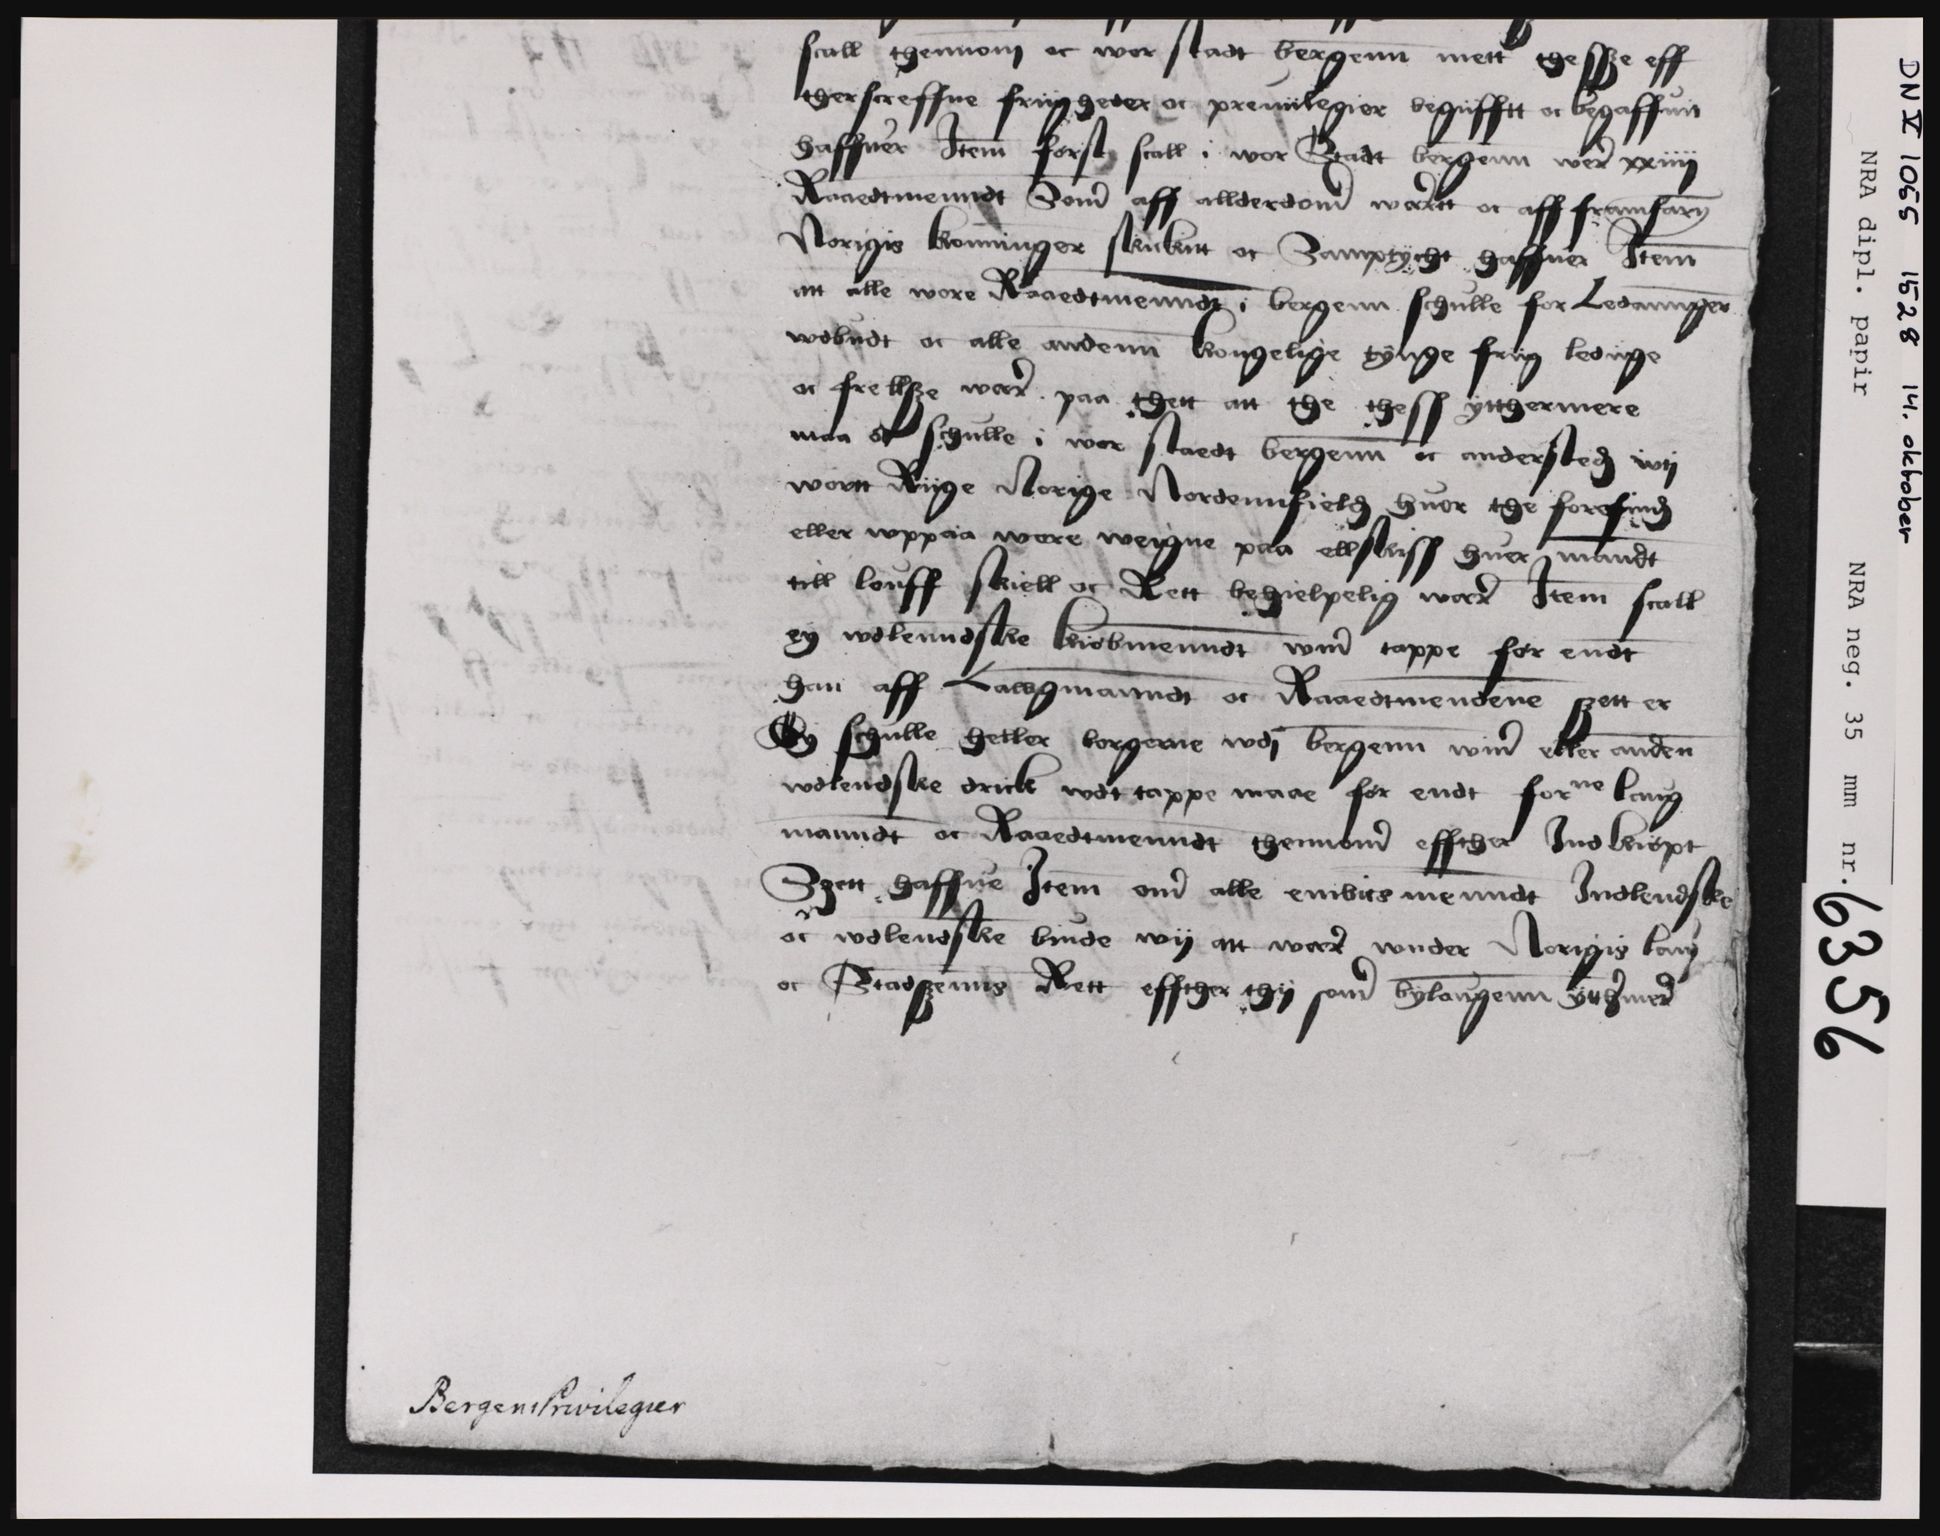 scall thennom oc wor stadt bergenn mett thessze eff
therscreffne friigheder oc preuilegier begiifftt oc begaffuit
haffuer Item først scall i wor Stadt bergenn wer xxiiij
Raaedtmenndt Som aff allderdom werrett oc aff framfarn
Norigis konninger skickitt oc Samptycht haffuer Item
att alle wore Raaedtmenndt i bergenn schulle for Ledannger
wdbudt oc alle andenn kongelige tynge friig ledige
oc frellsze werr paa thett att the thess ytthermere
maa oc schulle i wor staedt bergenn oc andersteds wij
wortt Riige Norige Nordennfields huor the forefinds
eller wppaa were weigne paa ellskiss huer mandt
till louff skiell oc Rett behielpelig werr Item scall
ey wdlenndske kiøbmenndt wiin tappe før endt
han aff Lawgmanndt oc Raaedtmendene szett er
Ey schulle heller borgerne wdj bergenn wiin eller anden
wdlendske drick wdt tappe maae før endt forne laug
manndt oc Raaedtmenndt thennom effther Indkiøpt
Szett haffue Item om alle embits menndt Indlendske
oc wdlendske biude wij att werr wnder Norigis laug
oc Stadszenns Rett effther thij som bylaugenn yttermer
Bergens Privilegier
DN V 1055 1528 14. oktober
NRA dipl. papir NRA neg. 35 mm nr. 6356